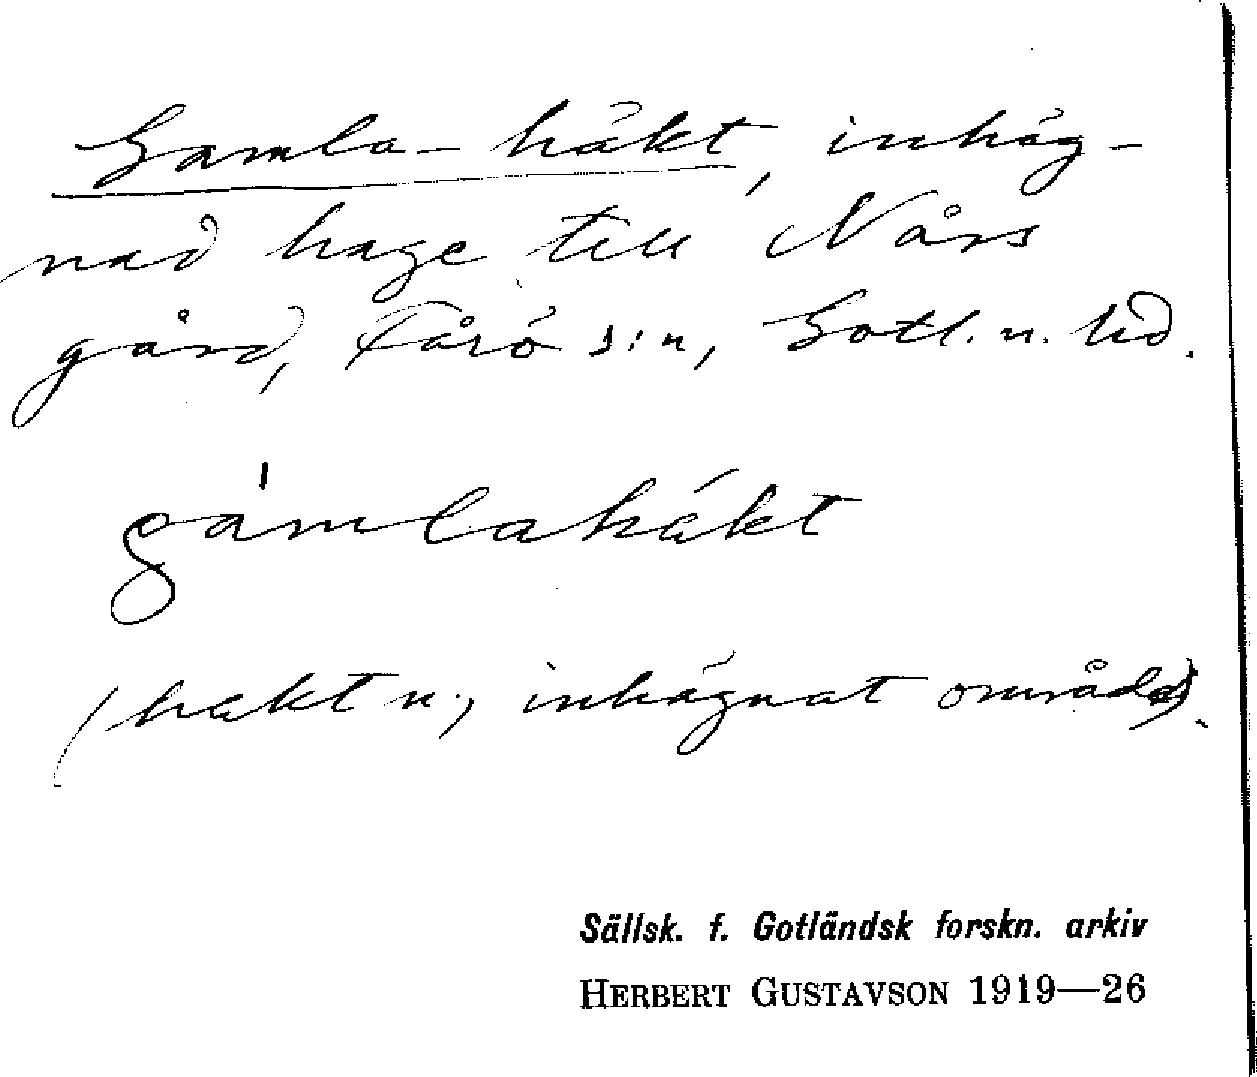 Gamla-häkt, inhäg-
nad hage till Nårs
gård, Fårö s:n, Gotl. n. hd.
gámlahäkt
(häkt n., inhägnat område).
Sällsk. f. Gotländsk forskn. arkiv
HERBERT GUSTAVSON 1919—26